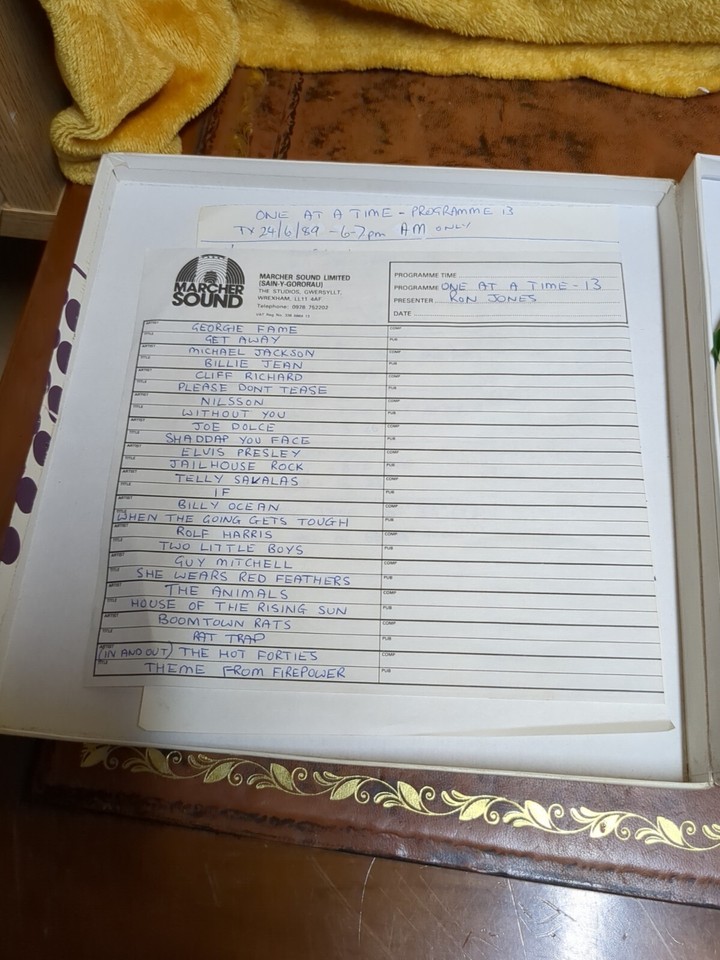 ONE AT A TIME - PROGRAMME 13
TX 24/6/89 - 6-7pm AM ONLY
MARCHER
SOUND
MARCHER SOUND LIMITED
(SAIN-Y-GORORAU)
THE STUDIOS, GWERSYLLT,
WREXHAM, LL11 4AF
Telephone: 0978 752202
PROGRAMME TIME
PROGRAMME ONE AT A TIME - 13
PRESENTER RON JONES
DATE
ARTIST GEORGIE FAME COMP
TITLE GET AWAY PUB
ARTIST MICHAEL JACKSON COMP
TITLE BILLIE JEAN PUB
ARTIST CLIFF RICHARD COMP
TITLE PLEASE DONT TEASE PUB
ARTIST NILSSON COMP
TITLE WITHOUT YOU PUB
ARTIST JOE DOLCE COMP
TITLE SHADDAP YOU FACE PUB
ARTIST ELVIS PRESLEY COMP
TITLE JAILHOUSE ROCK PUB
ARTIST TELLY SAVALAS COMP
TITLE IF PUB
ARTIST BILLY OCEAN COMP
TITLE WHEN THE GOING GETS TOUGH PUB
ARTIST ROLF HARRIS COMP
TITLE TWO LITTLE BOYS PUB
ARTIST GUY MITCHELL COMP
TITLE SHE WEARS RED FEATHERS PUB
ARTIST THE ANIMALS COMP
TITLE HOUSE OF THE RISING SUN PUB
ARTIST BOOMTOWN RATS COMP
TITLE RAT TRAP PUB
ARTIST (IN AND OUT) THE HOT FORTIES COMP
TITLE THEME FROM FIREPOWER PUB